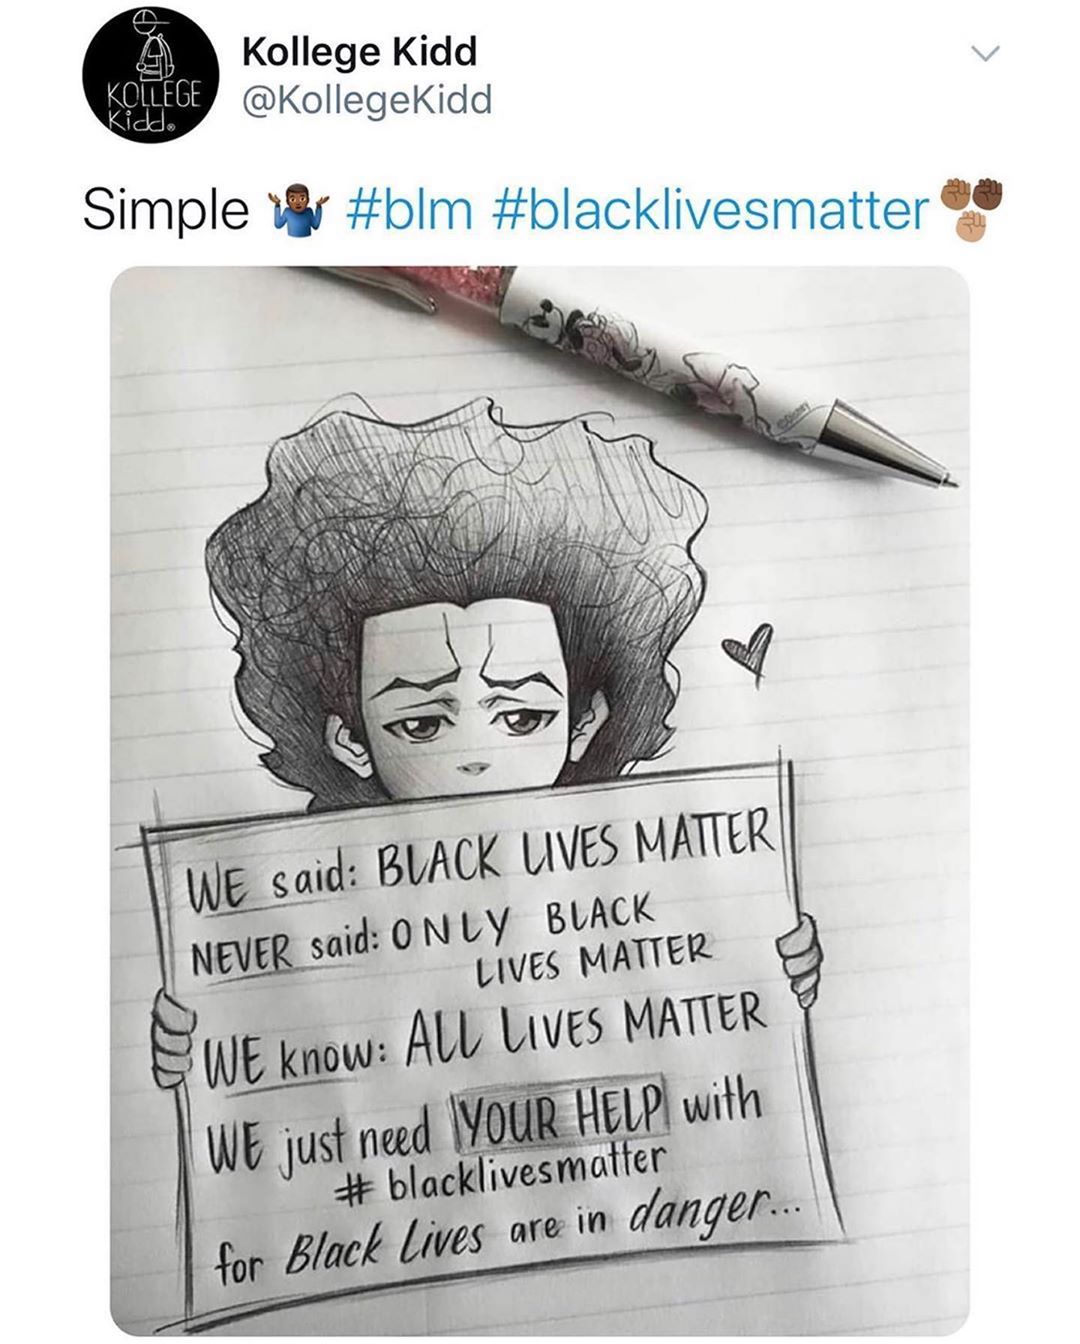 KOLLEGE
Kidd
Kollege Kidd
@KollegeKidd
Simple 🤷🏾‍♂️ #blm #blacklivesmatter ✊🏾✊🏿✊🏽
©Disney
WE said: BLACK LIVES MATTER
NEVER said: ONLY BLACK
LIVES MATTER
WE know: ALL LIVES MATTER
WE just need YOUR HELP with
# blacklivesmatter
for Black Lives are in danger...